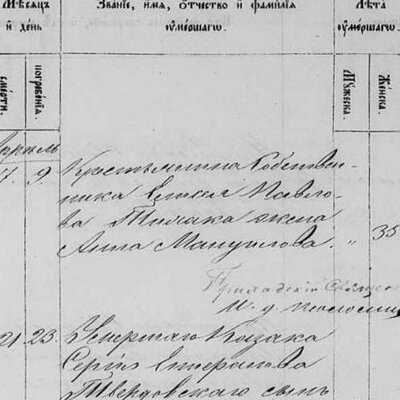 Мѣсяцъ
и день
Званіе, имя, отчество и фамилія
умершаго.
Лѣта
умершаго.
смерти.
погребенія.
Мужеска.
Женска.
Апрѣль
7. 9. Крестьянина Собствен-
ника Павло-
ва жена
Анна Мануилова. „ 35
Приходскій Священ
И. д. псаломщ
21 23. Умершаго Козака
Сергія Стефанова
Твердовскаго сынъ